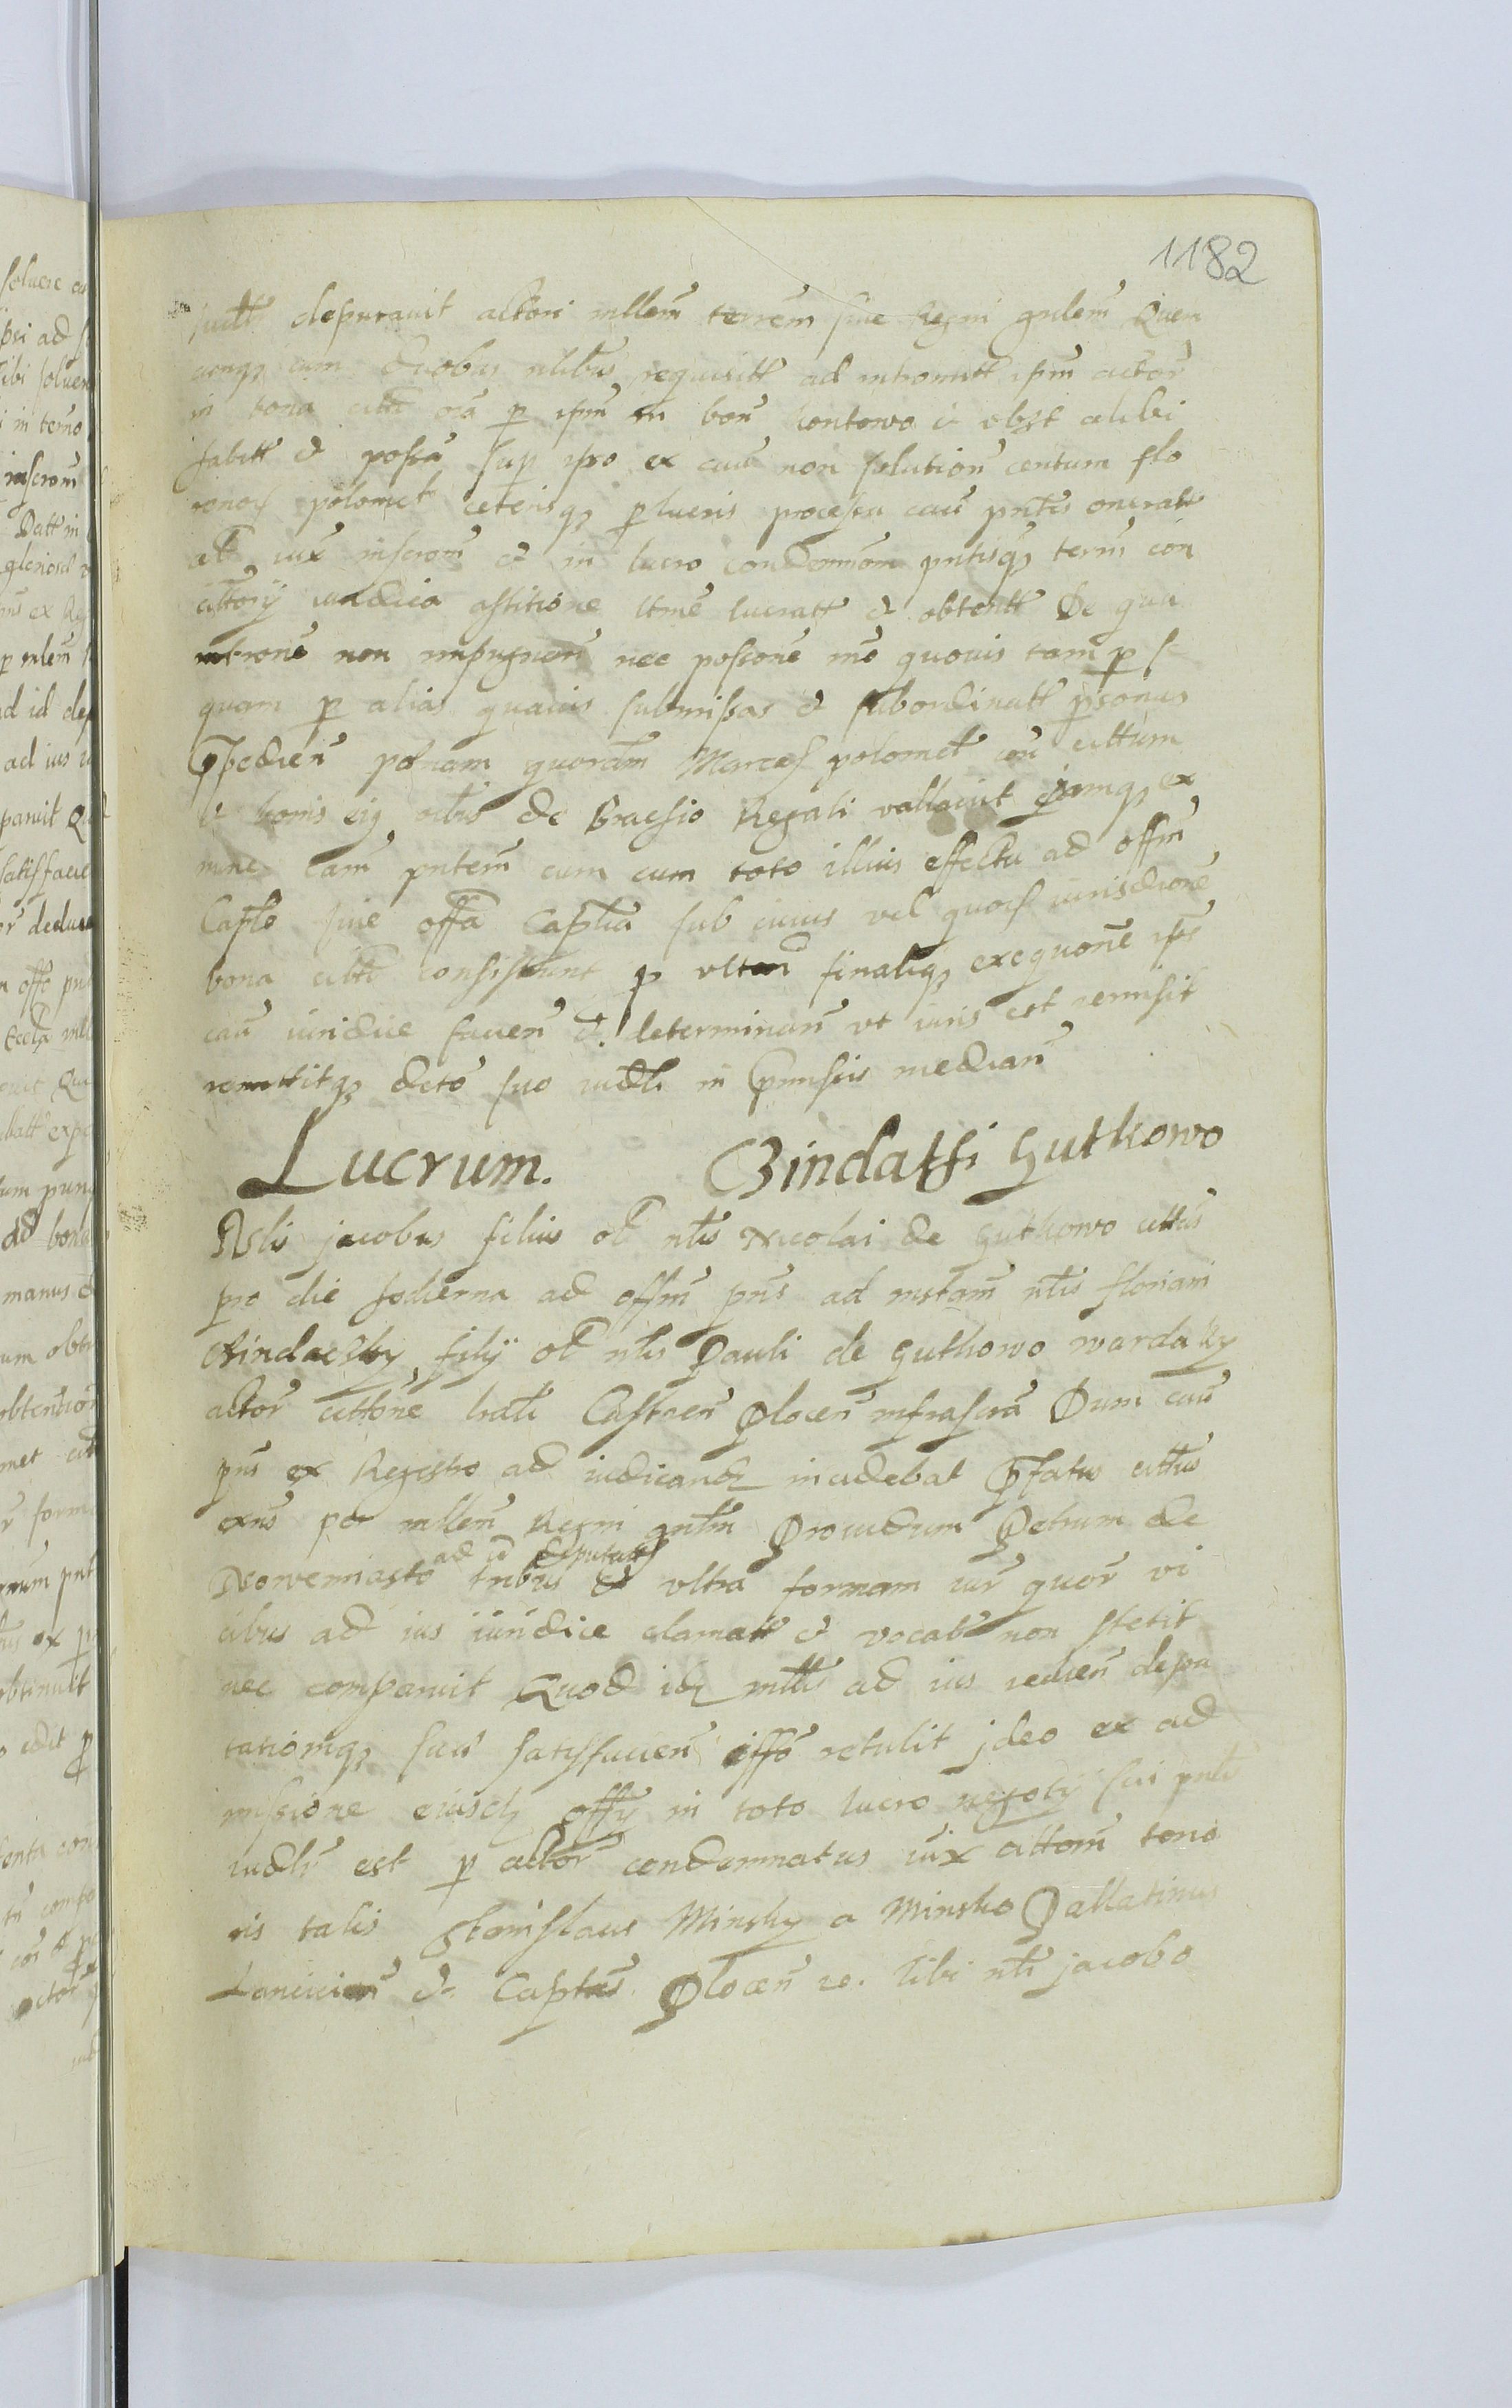 1182
depuravit actori mllem terrem sive Regni gnlem Quen
cunq cum duobus nlibus requisitt ad intromitt ipm actor
in bona citti p ipm in bon et obst alibi
habitt et possa sup ipso ex non solution centum flo
renos polonct ceterisq p lucris processu cau pntis oneratt
iux inscrom et in lucro condemnom pntisq term con
citory iuridica astitione ltme lucratt et obtentt De qua
introne non impugnan nec possone mo quovis tam p se
quam p alias quavis submissas et subordinatt psonas
ppedien penam quoram Marcas polonict con cittum
et bonis eiq de Grassio Regali vallavit eamq ex
nunc cam pntem eam cum toto illius effectu ad offm
Caple sive offa Caplia sub cuius vel quor iurisdione
bona citti consistunt p ultam finaliq exequone ipse
cau iuridice facien et determinan ut iuris est remisit
remittitq dcto suo iudli in pmissis median
Lucrum. Bindassi Gutkowo
Nlis jacobus filius ol nlis Nicolai de Gutkowo cittus
pro die hodierna ad offm pns ad instam nlis floriani
Bindassky filij ol nlis Pauli de Gutkowo warda ky
actor cittone Castren Plocen infrascra Dum cau
pns ex Regestro ad iudicand incidebat pfatus cittus
exns per mllem Regni gnlm Providum Petrum de
Nowemiasto tribus et ultra formam iur quor vi
ad id deputatt
cibus ad ius iuridice clamatt et vocatt non stetit
nec comparuit Quod idz mllis ad ius redien depu
tationiq sua satisfacien offo retulit jdeo ex ad
missione eiusdz offij in toto lucro negotij sui pnti
iudli est p actor condemnatus iux cittom teno
ris talis Stanislaus Minsky a Minsko Pallatinus
Lancicien et Captus Plocen Tibi nli jacobo